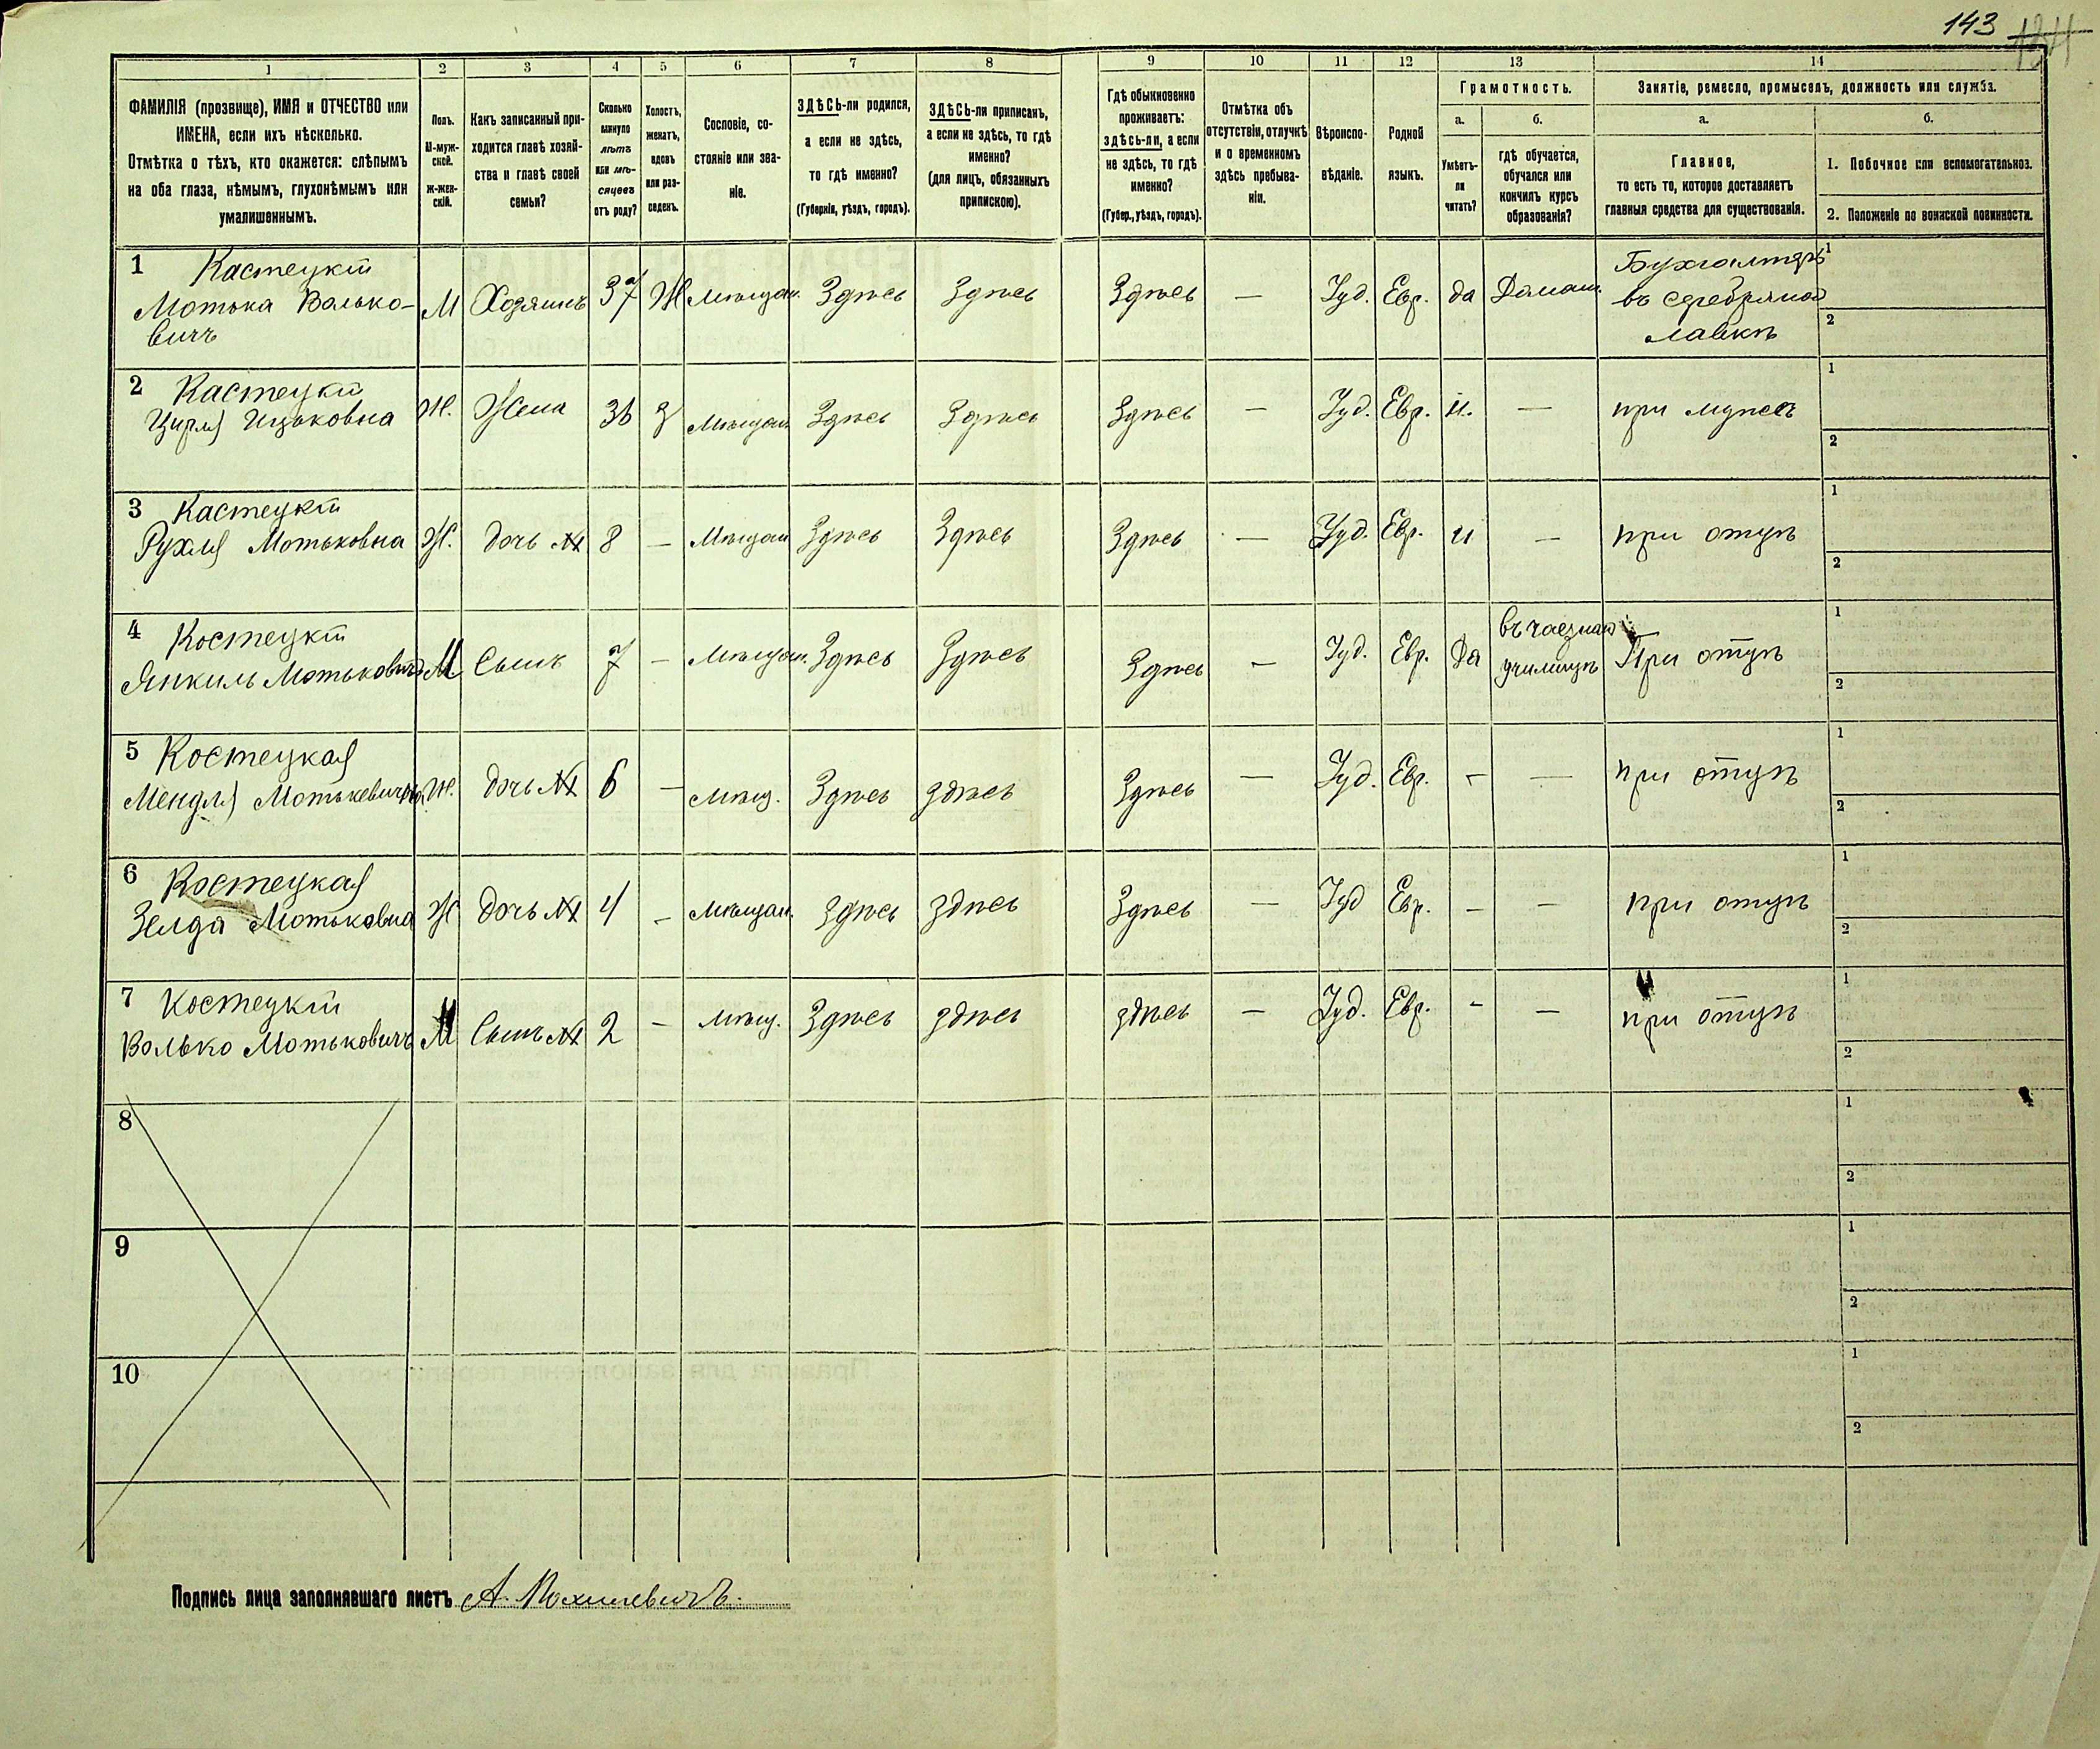 143 134
1 2 3 4 5 6 7 8 9 10 11 12 13 14
ФАМИЛІЯ (прозвище), ИМЯ и ОТЧЕСТВО или
ИМЕНА, если ихъ нѣсколько.
Отмѣтка о тѣхъ, кто окажется: слѣпымъ
на оба глаза, нѣмымъ, глухонѣмымъ или
умалишеннымъ.
Полъ.
М-муж-
ской.
Ж-жен-
скій.
Какъ записанный при-
ходится главѣ хозяй-
ства и главѣ своей
семьи?
Сколько
минуло
лѣтъ
или мѣ-
сяцевъ
отъ роду?
Холостъ,
женатъ,
вдовъ
или раз-
веденъ.
Сословіе, со-
стояніе или зва-
ніе.
ЗДѢСЬ-ли родился,
а если не здѣсь,
то гдѣ именно?
(Губернія, уѣздъ, городъ).
ЗДѢСЬ-ли приписанъ,
а если не здѣсь, то гдѣ
именно?
(для лицъ, обязанныхъ
припискою).
Гдѣ обыкновенно
проживаетъ:
здѣсь-ли, а если
не здѣсь, то гдѣ
именно?
(Губер., уѣздъ, городъ).
Отмѣтка объ
отсутствіи, отлучкѣ
и о временномъ
здѣсь пребыва-
ніи.
Вѣроиспо-
вѣданіе.
Родной
языкъ.
Грамотность.
а.
Умѣетъ-
ли
читать?
б.
гдѣ обучается,
обучался или
кончилъ курсъ
образованія?
Занятіе, ремесло, промыселъ, должность или служба.
а.
Главное,
то есть то, которое доставляетъ
главныя средства для существованія.
б.
1. Побочное или вспомогательное.
2. Положеніе по воинской повинности.
1 Кастецкій
Мотька Валько-
вичъ
М Хозяинъ 37 Ж Мѣщан. Здѣсь Здѣсь Здѣсь — Іуд. Евр. да Домаш.
Бухгалтеръ
въ серебряной
лавкѣ
1
2
2 Кастецкій
Цирля Ицьковна Ж. Жена 36 З Мѣщан Здѣсь Здѣсь Здѣсь — Іуд. Евр. н. — при мужѣ
1
2
3 Кастецкій
Рухля Мотьковна Ж. дочь №1 8 — Мѣщан Здѣсь Здѣсь Здѣсь — Іуд. Евр. н — при отцѣ
1
2
4 Костецкій
Янкиль Мотьковичъ М Сынъ 7 — Мѣщан. Здѣсь Здѣсь Здѣсь — Іуд. Евр. Да
училищѣ При отцѣ
1
2
5 Костецкая
Мендля Мотькевична Ж. дочь №1 6 — Мѣщ. Здѣсь здѣсь Здѣсь — Іуд. Евр. - — при отцѣ
1
2
6 Костецкая
Зелда Мотьковна Ж дочь №1 4 — Мѣщан. Здѣсь здѣсь Здѣсь — Іуд Евр. — — при отцѣ
1
2
7 Костецкій
Волько Мотьковичъ М Сынъ №1 2 — Мѣщ. Здѣсь здѣсь здѣсь — Іуд. Евр. - — при отцѣ
1
2
8
1
2
9
1
2
10
1
2
Подпись лица заполнявшаго листъ